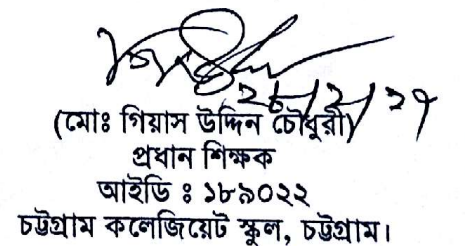 (মোঃ গিয়াস উদ্দিন চৌধুরী)
প্রধান শিক্ষক
আইডি ঃ ১৮৯০২২
চট্টগ্রাম কলেজিয়েট স্কুল, চট্টগ্রাম।